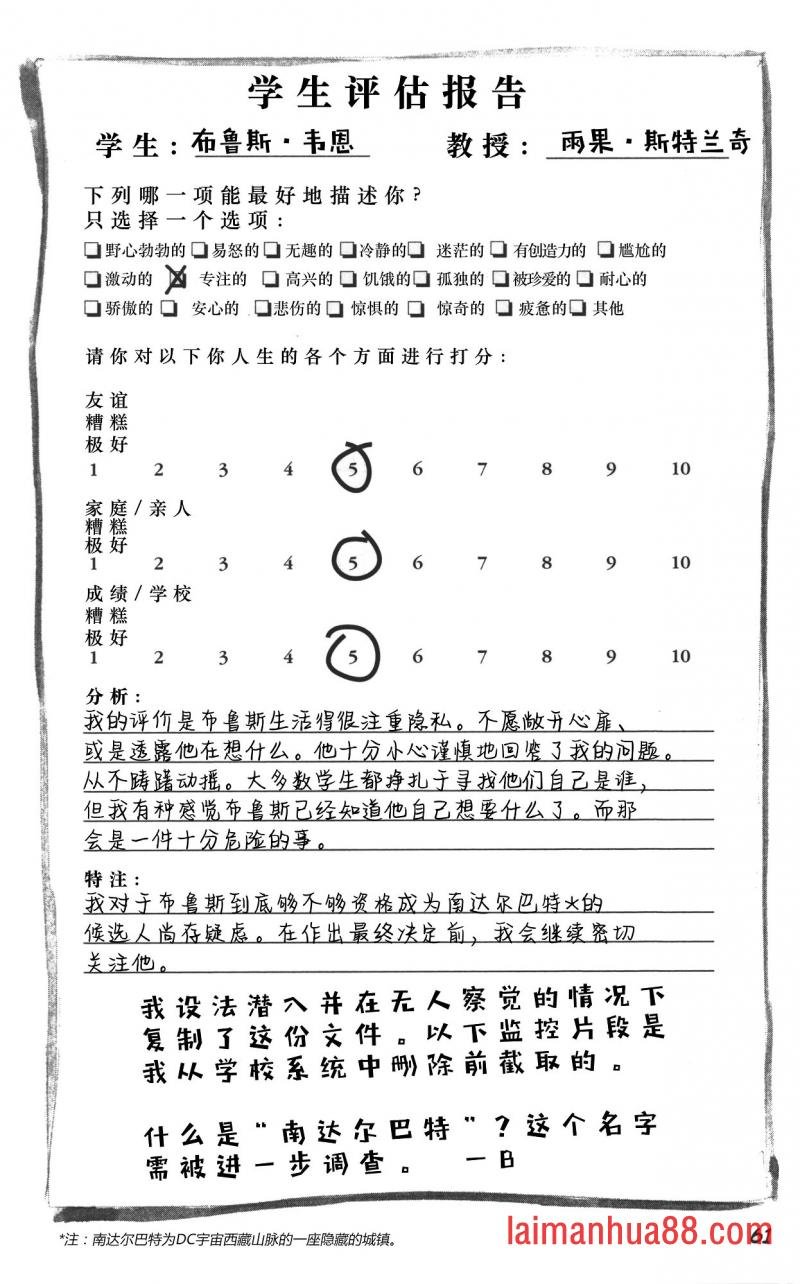 学生评估报告
学生：布鲁斯·韦恩 教授：雨果·斯特兰奇
下列哪一项能最好地描述你？
只选择一个选项：
野心勃勃的 易怒的 无趣的 冷静的 迷茫的 有创造力的 尴尬的
激动的 专注的 高兴的 饥饿的 孤独的 被珍爱的 耐心的
骄傲的 安心的 悲伤的 惊惧的 惊奇的 疲惫的 其他
请你对以下你人生的各个方面进行打分：
友谊
糟糕
极好
1 2 3 4 5 6 7 8 9 10
家庭/亲人
糟糕
极好
1 2 3 4 5 6 7 8 9 10
成绩/学校
糟糕
极好
1 2 3 4 5 6 7 8 9 10
分析：
我的评价是布鲁斯生活得很注重隐私。不愿敞开心扉、
或是透露他在想什么。他十分小心谨慎地回答了我的问题。
从不踌躇动摇。大多数学生都挣扎于寻找他们自己是谁，
但我有种感觉布鲁斯已经知道他自己想要什么了。而那
会是一件十分危险的事。
特注：
我对于布鲁斯到底够不够资格成为南达尔巴特*的
候选人尚存疑虑。在作出最终决定前，我会继续密切
关注他。
我设法潜入并在无人察觉的情况下
复制了这份文件。以下监控片段是
我从学校系统中删除前截取的。
什么是“南达尔巴特”？这个名字
需被进一步调查。 —B
*注：南达尔巴特为DC宇宙西藏山脉的一座隐藏的城镇。
61
laimanhua88.com